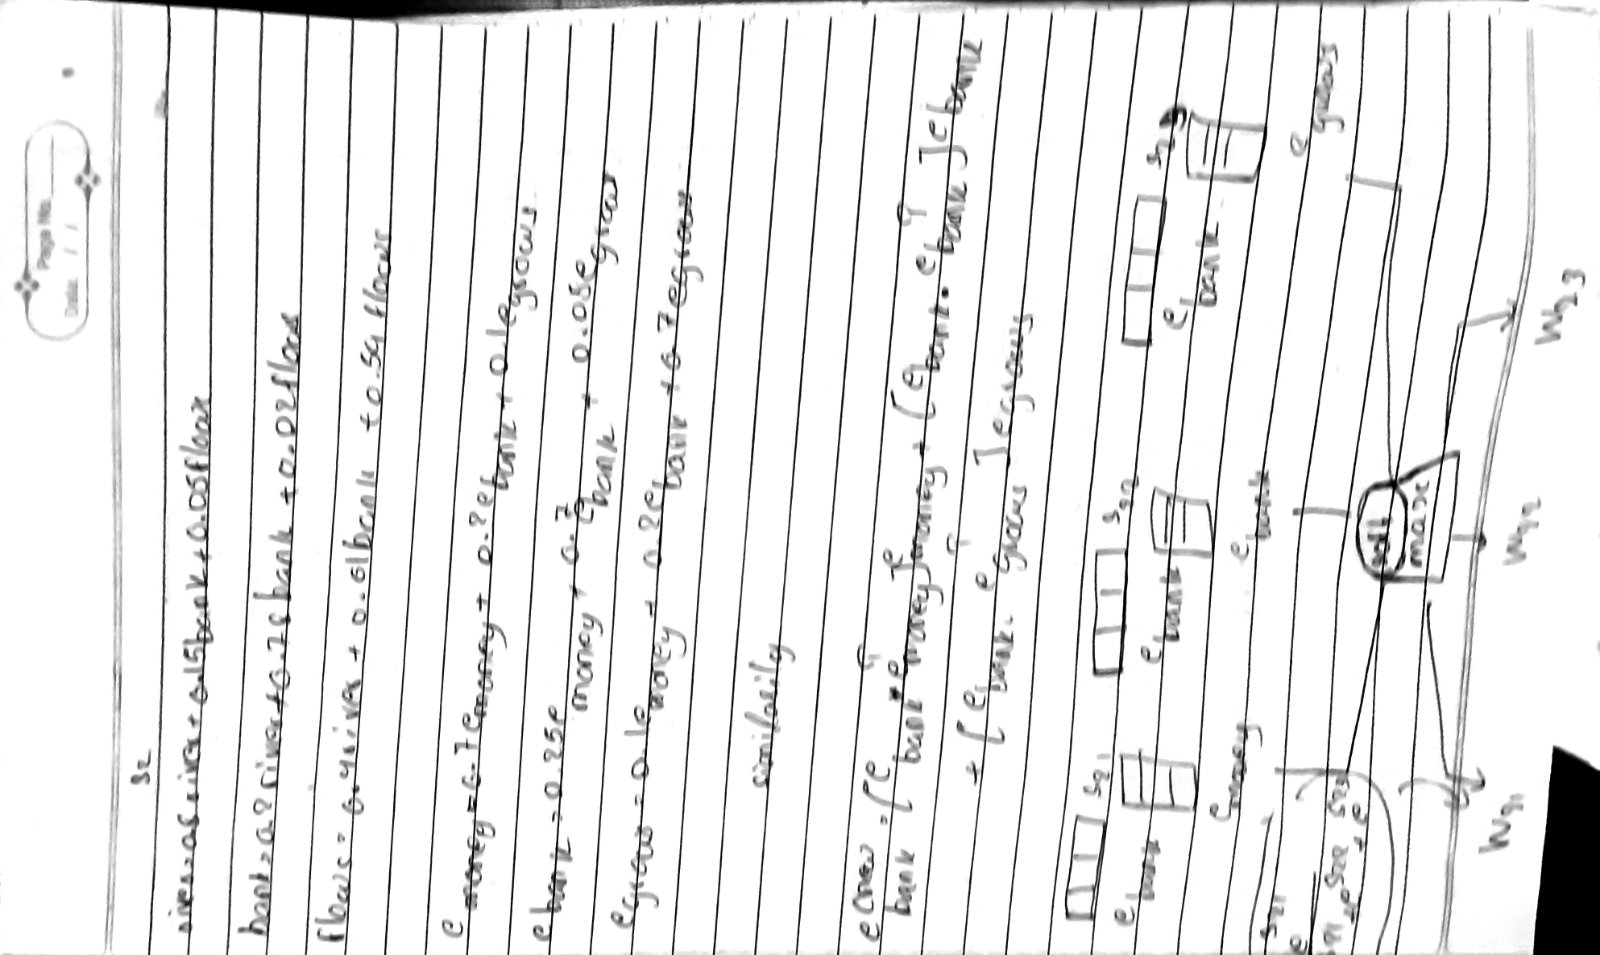 Page No.
Date: / /
S2
river = 0.8river + 0.15bank + 0.05floar
bank = 0.2river + 0.78bank + 0.02flows
flows = 0.4river + 0.01bank + 0.59flows
e money = 0.7 e money + 0.2e bank + 0.1e grows
e bank = 0.25e money + 0.7 e bank + 0.05e grow
e grow = 0.1e money + 0.2e bank + 0.7 e grow
similarily
e (new) bank = [e bank . e T money] e money + [e bank . e T bank] e bank
+ [e bank . e T grows] e grows
S21 S22 S23
e bank e bank e bank
e money e bank e grows
S21
e
S21 S22 S23
e + e + e
soft
max
W21 W22 W23